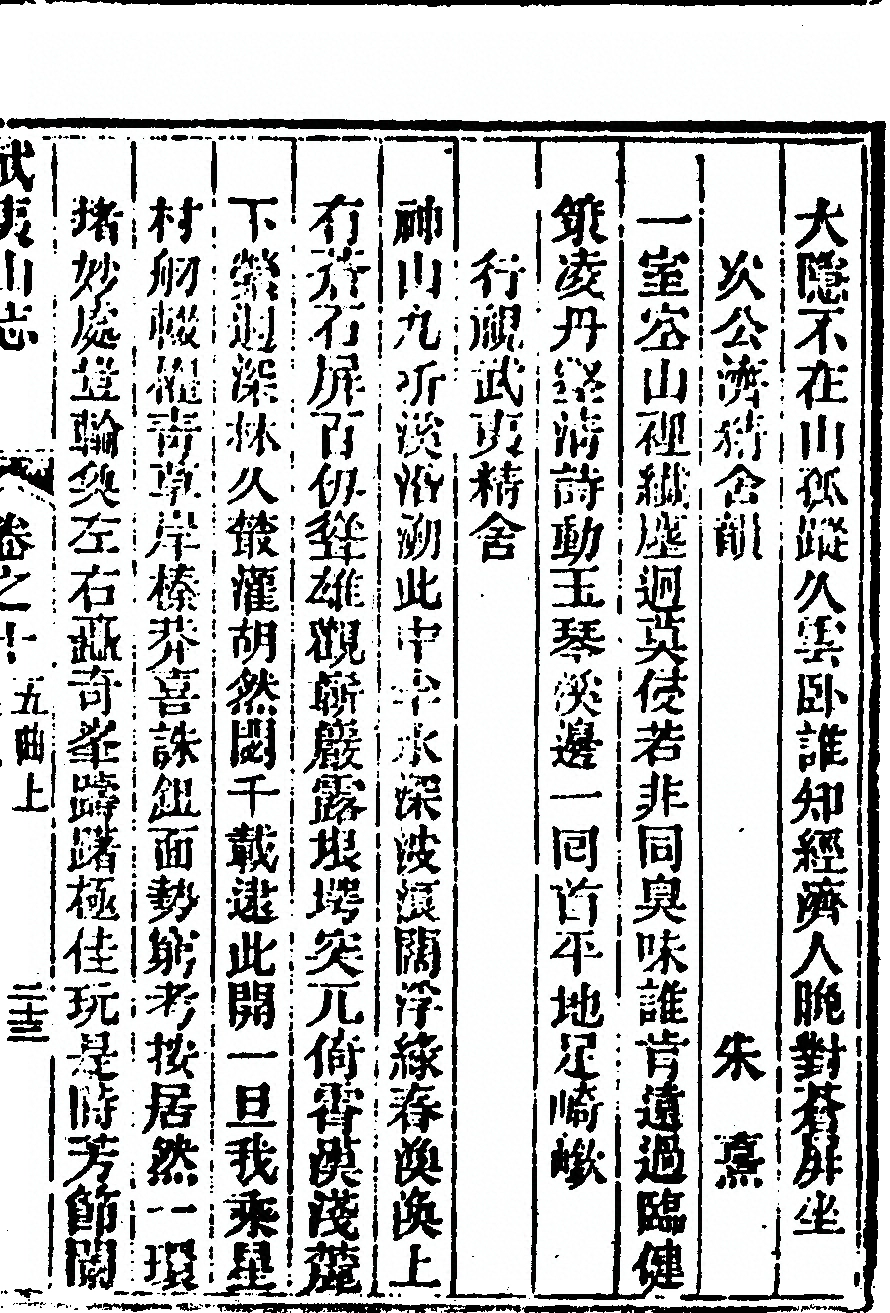 大隱不在山孤蹤久雲卧誰知經濟人晚對蒼屏坐
次公濟精舍韻
朱熹
一室空山裡纖塵迥莫侵若非同臭味誰肯遠過臨健
策凌丹壑清詩動玉琴溪邊一回首平地足崎嶔
行視武夷精舍
神山九折溪沿泝此中半水深波浪闊浮綠春渙渙上
有蒼石屏百仞聳雄觀嶄巖露垠堮突兀倚霄漢淺麓
下縈迴深林久叢灌胡然閟千載逮此開一旦我乘星
村舠輟櫂青草岸榛莽喜誅鉏面勢窮考按居然一環
堵妙處豈輪奐左右矗奇峯躊躇極佳玩是時芳節闌
武夷山志
卷之十
五曲上
二十三